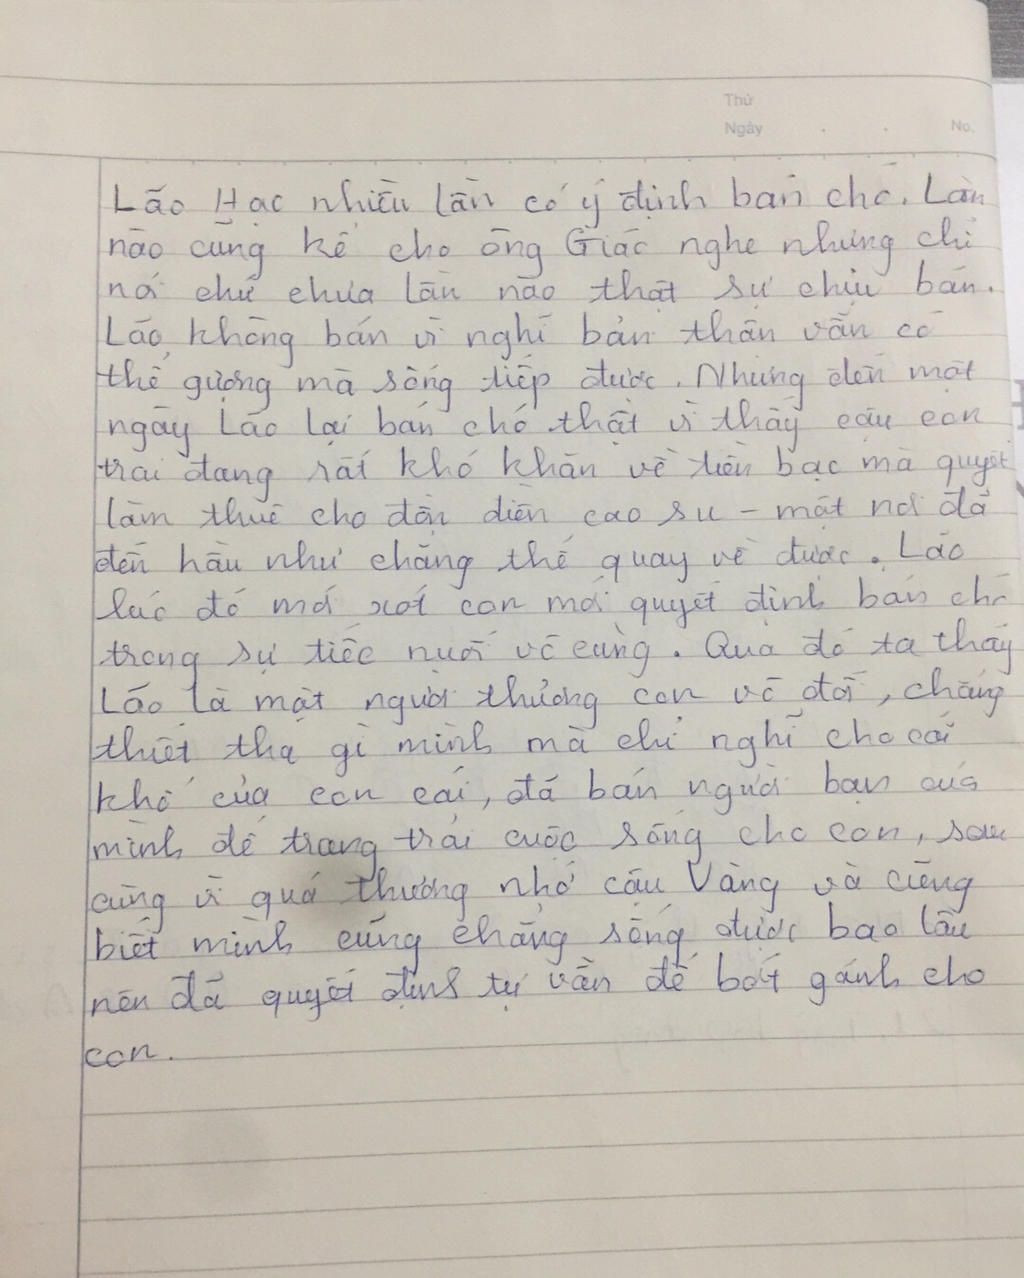 Thứ
Ngày . . No.
Lão Hạc nhiều lần có ý định bán chó. Lần
nào cũng kể cho ông Giác nghe nhưng chỉ
nói chứ chưa lần nào thật sự chịu bán.
Lão không bán vì nghĩ bản thân vẫn có
thể gượng mà sống tiếp được. Nhưng đến một
ngày Lão lại bán chó thật vì thấy cậu con
trai đang rất khó khăn về tiền bạc mà quyết
làm thuê cho đồn điền cao su - một nơi đã
đến hầu như chẳng thể quay về được. Lão
lúc đó mới xót con mới quyết định bán chó
trong sự tiếc nuối vô cùng. Qua đó ta thấy
Lão là một người thương con vô đối, chẳng
thiết tha gì mình mà chỉ nghĩ cho cái
khổ của con cái, đã bán người bạn của
mình để trang trải cuộc sống cho con, sau
cùng vì quá thương nhớ cậu Vàng và cũng
biết mình cũng chẳng sống được bao lâu
nên đã quyết định tự vẫn để bớt gánh cho
con.